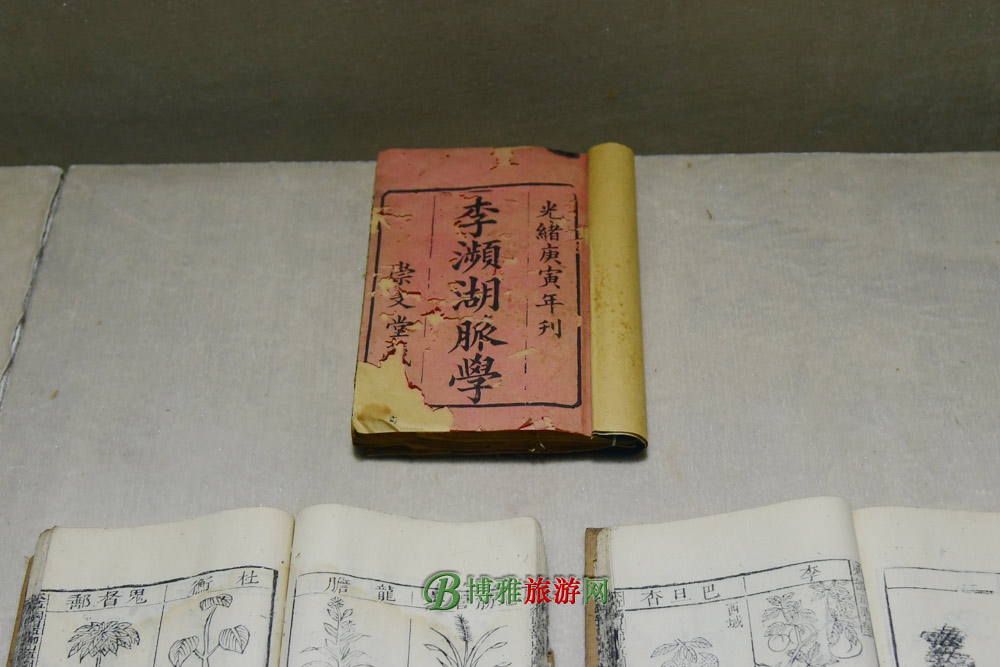 光緒庚寅年刊
李瀕湖脈學
崇文堂藏
杜衡
鬼督郵
龍膽
李
巴旦杏
西域
博雅旅游网